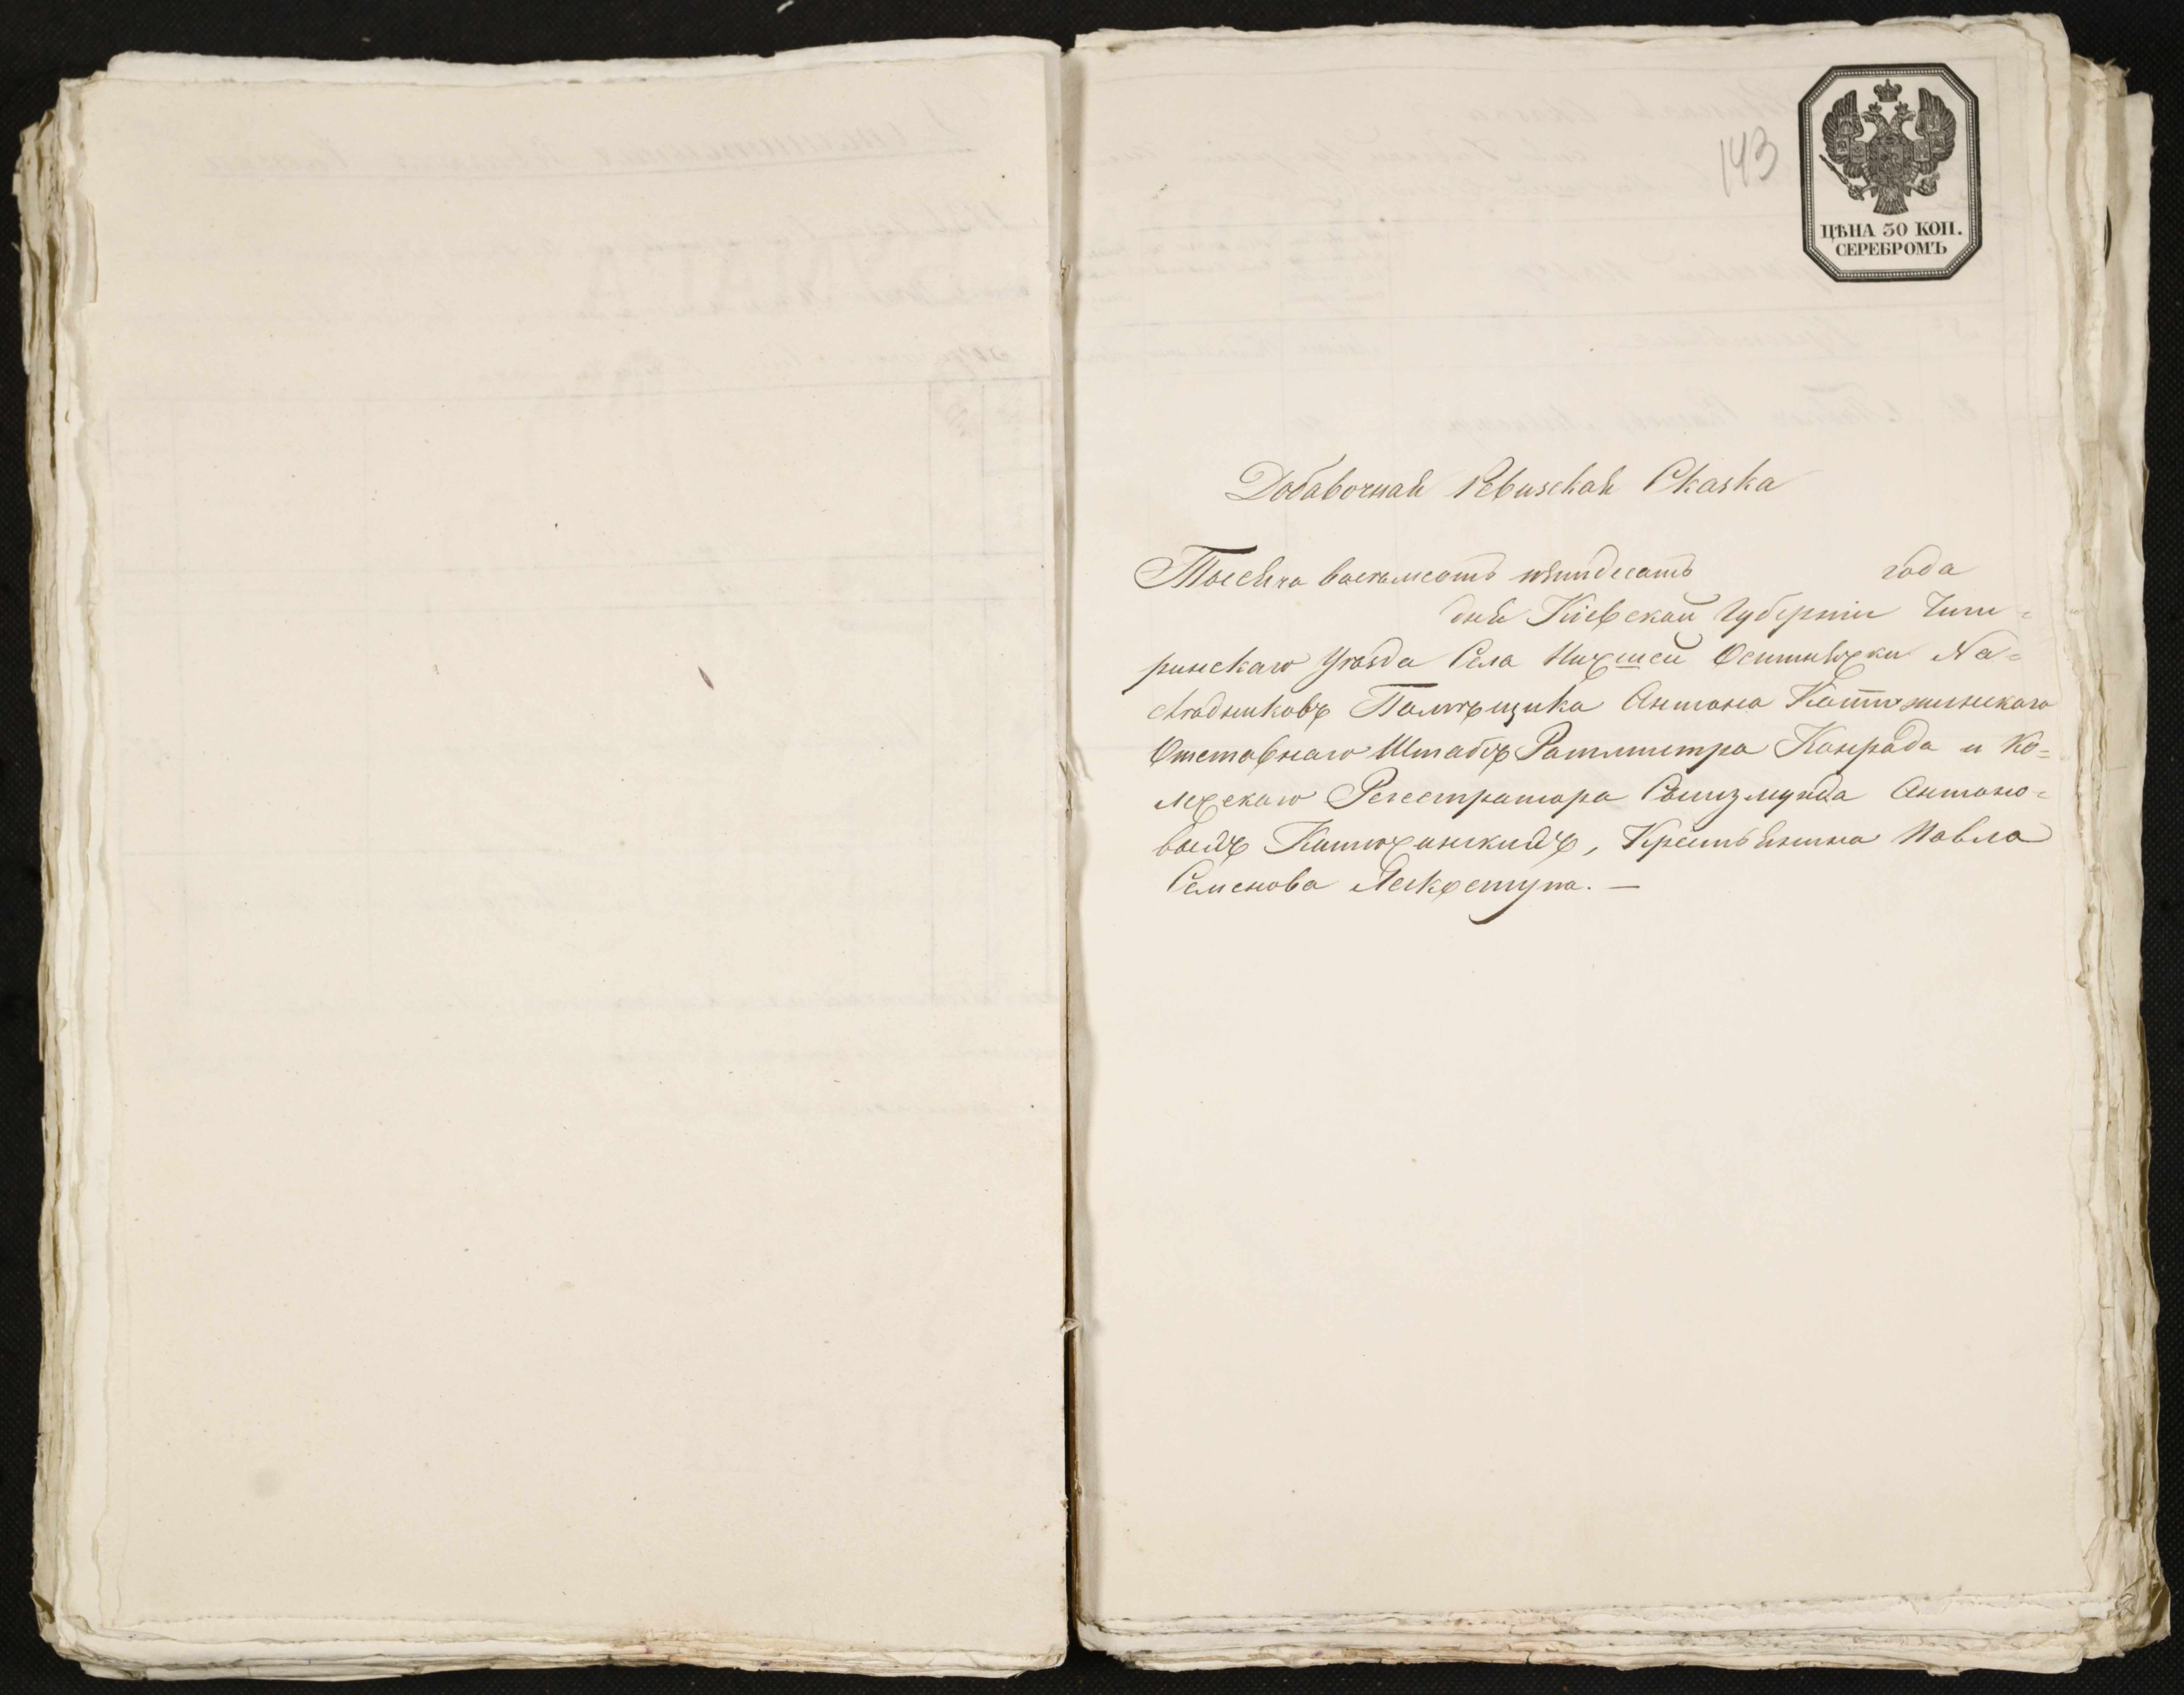 143
ЦѢНА 30 КОП.
СЕРЕБРОМЪ
Добавочная Ревизская Сказка
Тысяча восемсотъ пятдесятъ года
дня Кіевской Губерніи Чиги=
ринскаго Уѣзда Села Нижшей Оситняжки На=
слѣдниковъ Помѣщика Антона
Отставнаго Штабъ Ротмистра Конрада и Ко=
лежскаго Регестратора Сигизмунда Антоно=
выхъ , Крестьянина Павла
Семенова